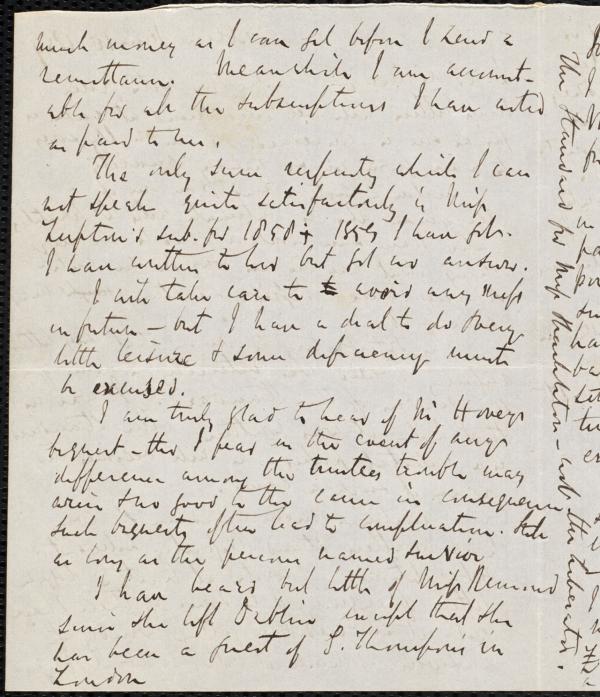 much money as I can get before I send a
remittance. Meanwhile I am account-
able for all the subscriptions I have noted
as paid to me.
The only sum respecting which I can
not speak quite satisfactorily is Miss
Lupton's sub. for 1858 + 1859 I have
I have written to her but got no answer.
I will take care to avoid any
in future - but I have a deal to do & very
little leisure & some deficiency must
be excused.
I am truly glad to hear of Mr Hovey's
bequest - tho I fear in the event of any
difference among the trustees trouble may
arise & no good to the cause in consequence
Such bequests often lead to complication.
as long as the persons named survive
I have heard but little of Miss Remond
since she left Dublin except that she
has been a guest of G. Thompson's in
London
The Standard for Miss - not the Liberator.